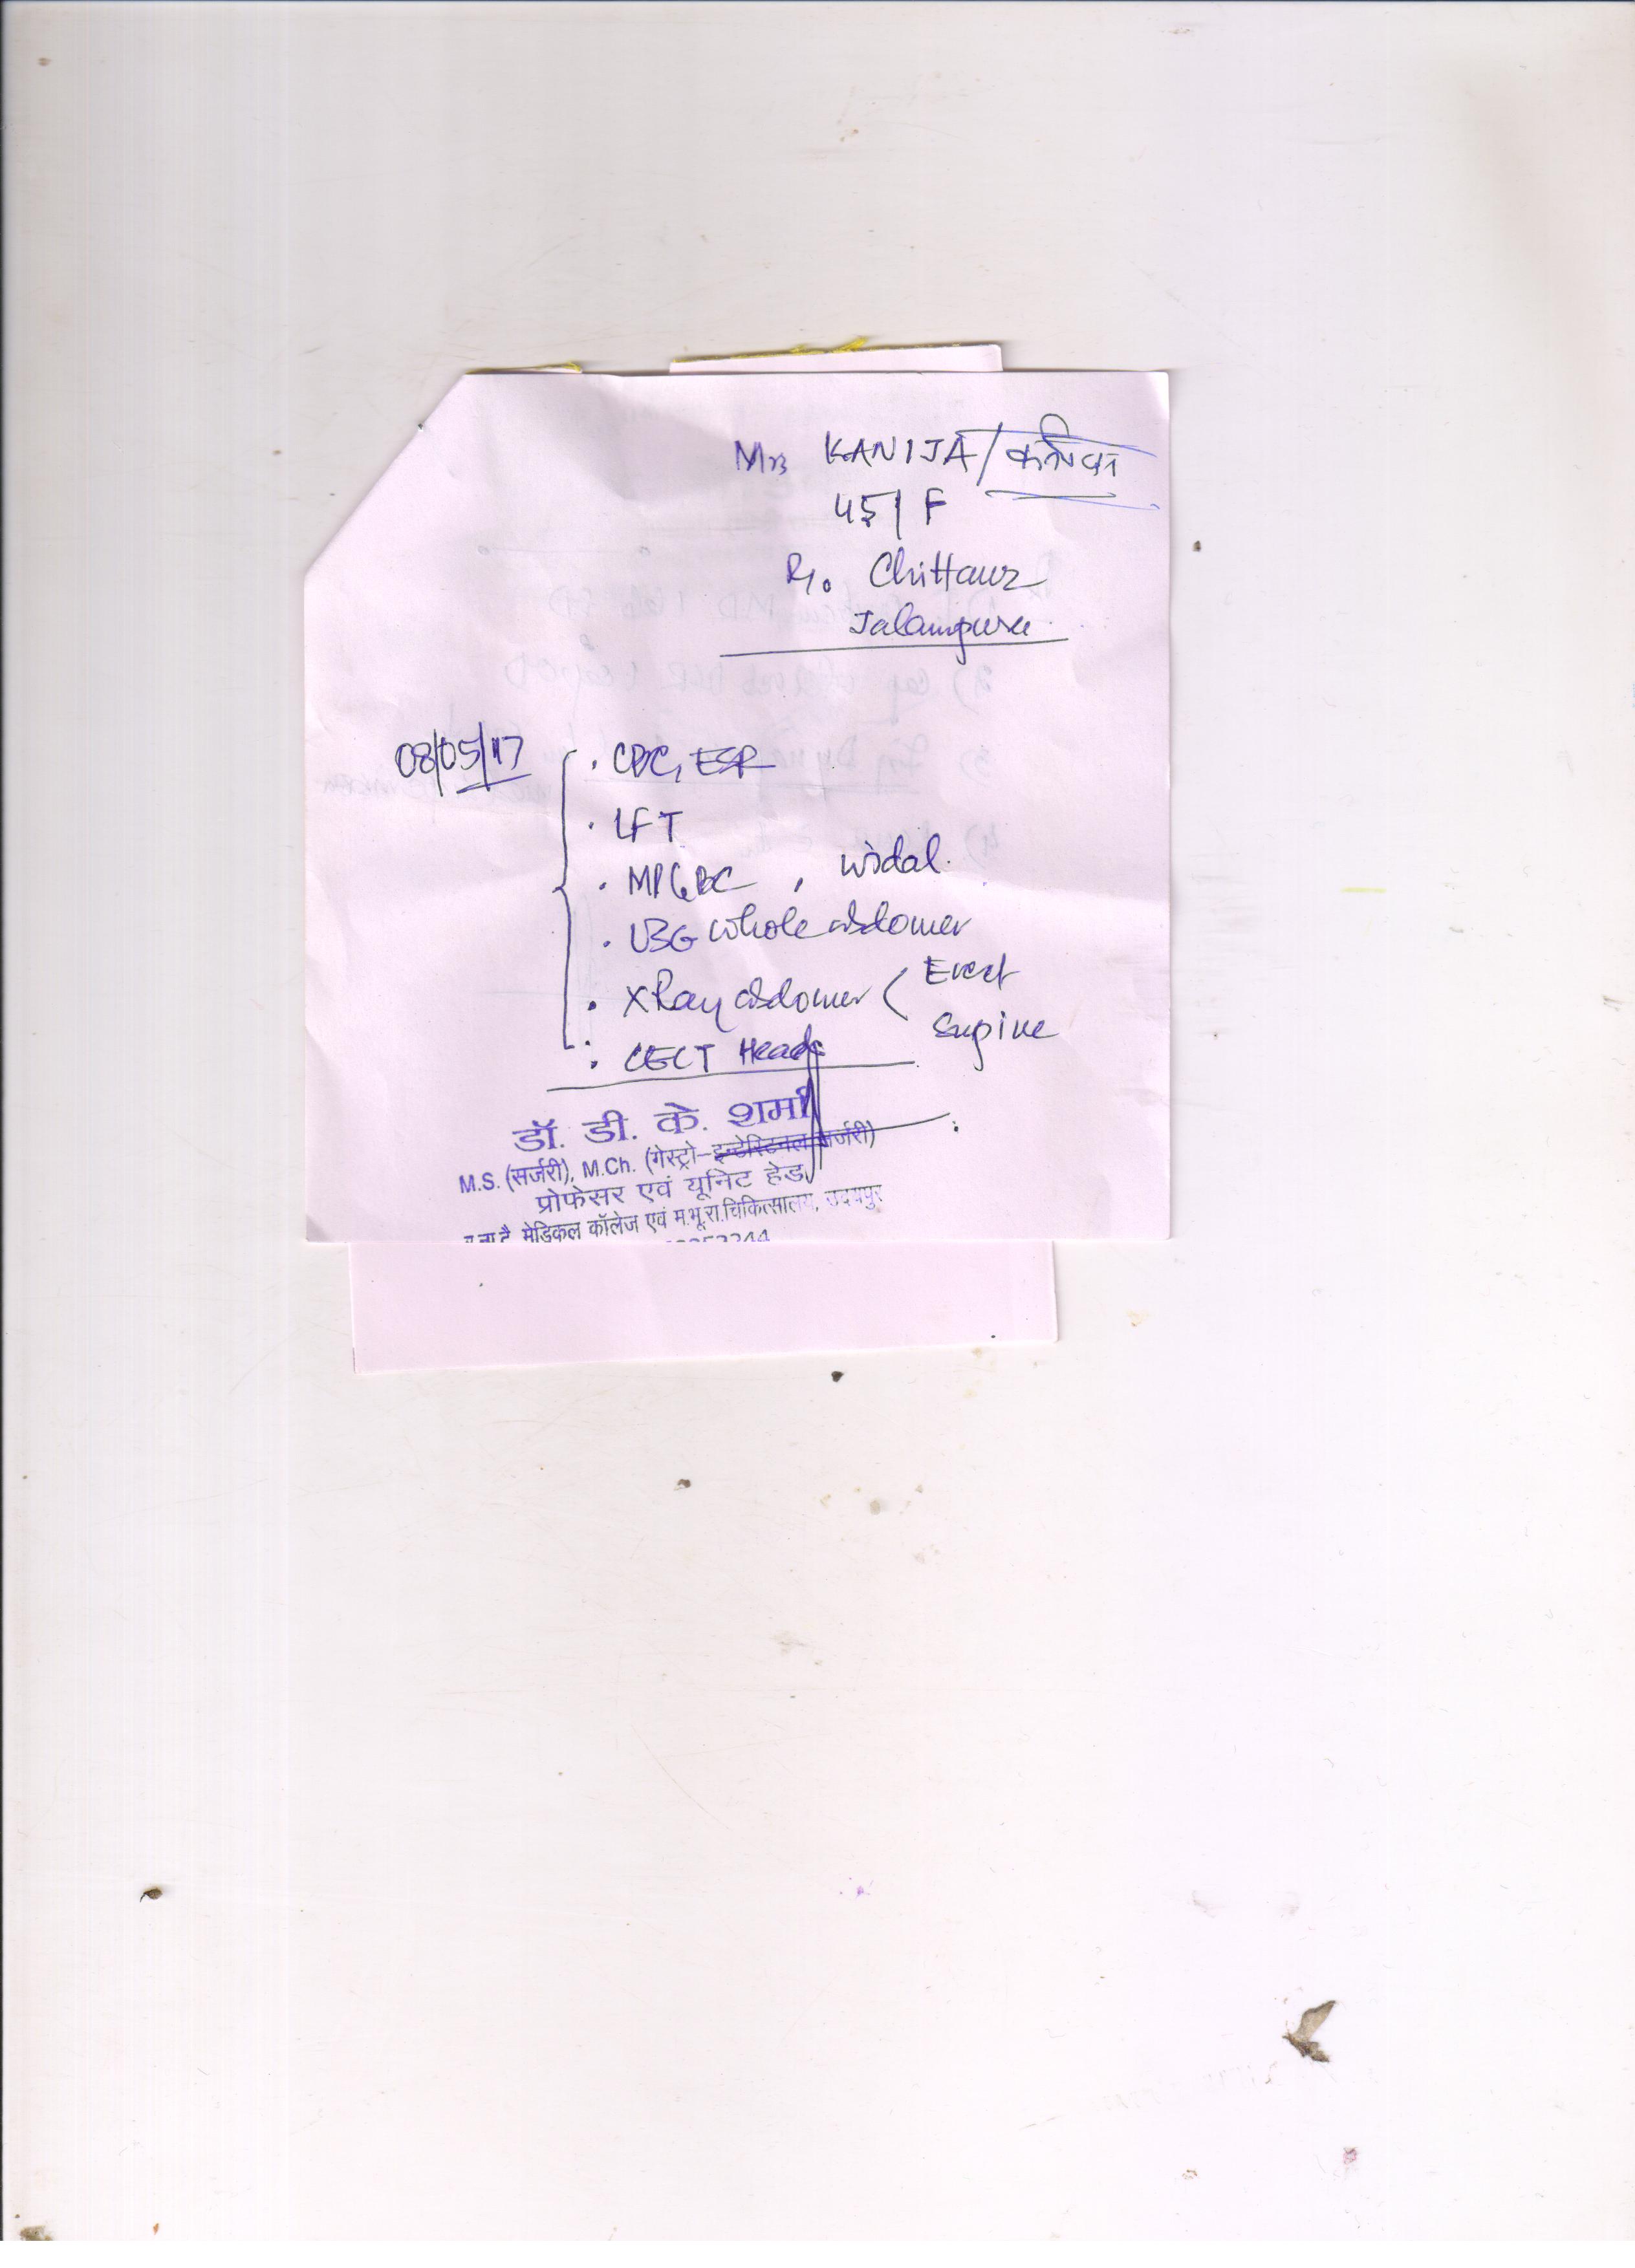 Mrs KANIJA/
45/F
R/o Chittaur
Jalampura
08/05/17
. CBC, ESR
. LFT
. MP by QBC, widal.
. USG whole abdomen
. X Ray abdomen < Erect
Supine
. CECT Head
डॉ. डी. के. शर्मा
M.S. (सर्जरी), M.Ch. (गेस्ट्रो-इन्टेस्टिनल सर्जरी)
प्रोफेसर एवं यूनिट हेड
मेडिकल कॉलेज एवं म.भू.रा.चिकित्सालय, उदयपुर